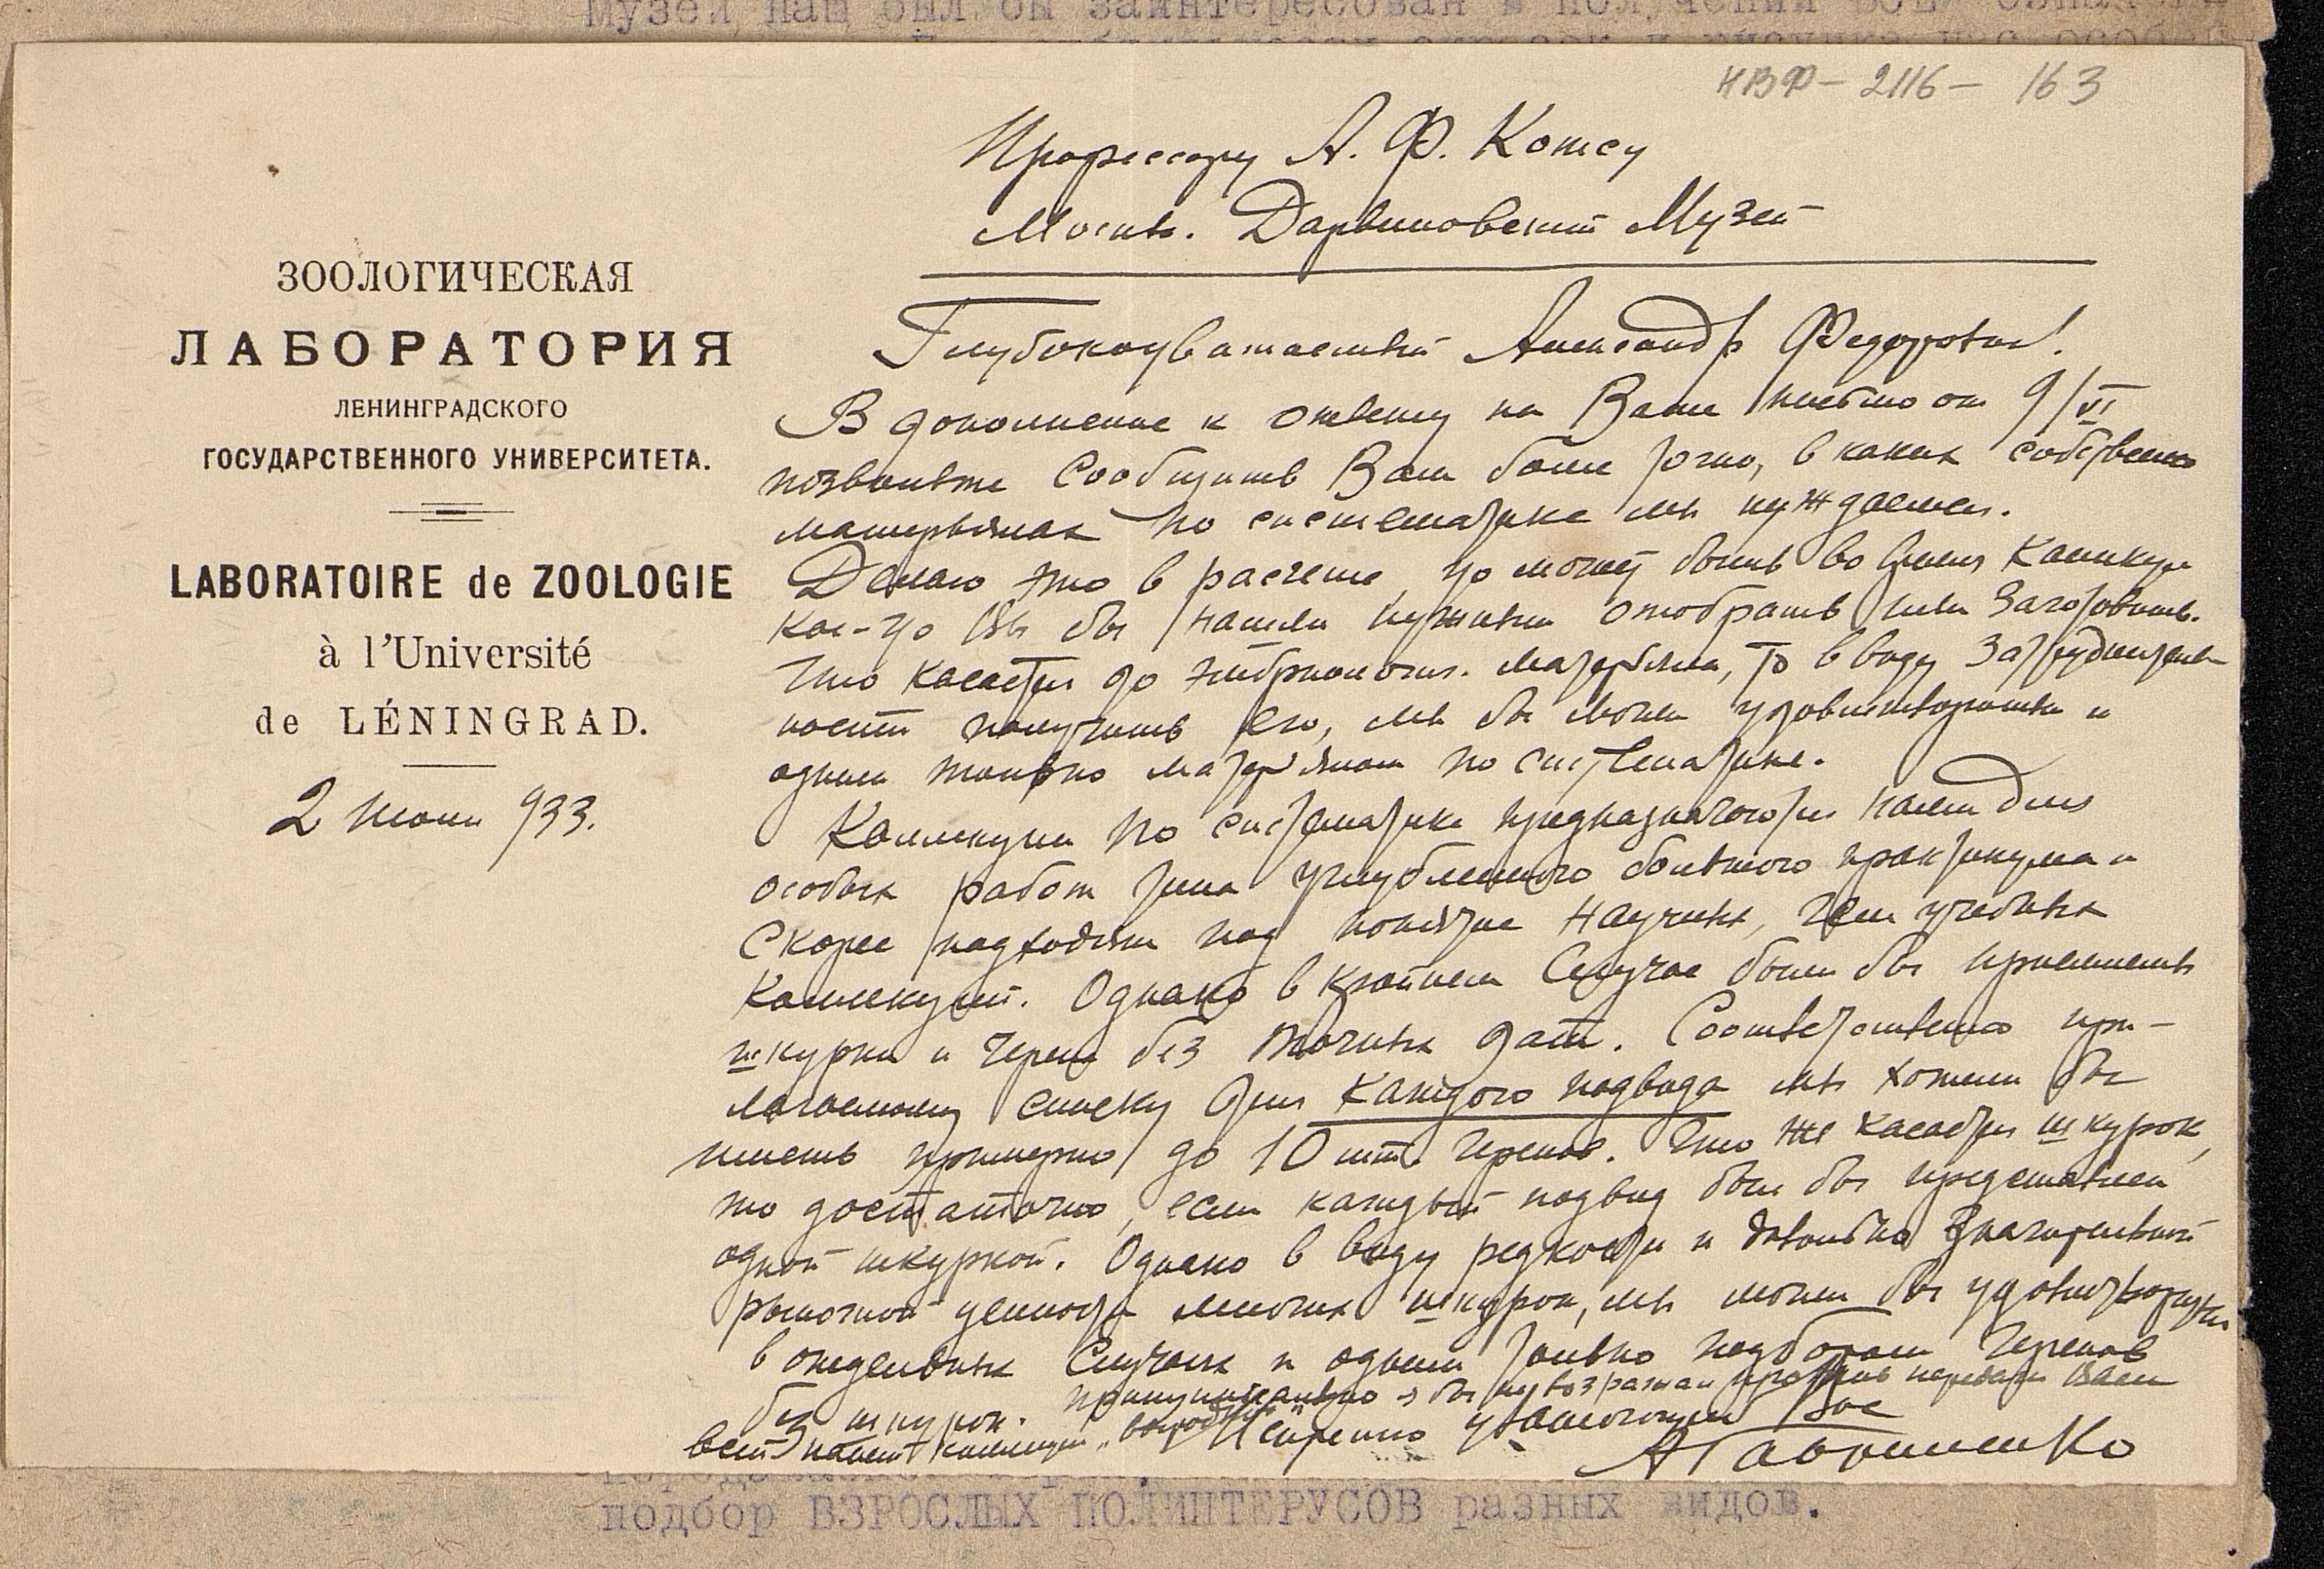 Музей наш был бы заинтересован в получении
НВФ – 2116 – 163
Профессору А. Ф. Котсу
Москва. Дарвиновский Музей
ЗООЛОГИЧЕСКАЯ
ЛАБОРАТОРИЯ
ЛЕНИНГРАДСКОГО
ГОСУДАРСТВЕННОГО УНИВЕРСИТЕТА.
LABORATOIRE de ZOOLOGIE
à l'Université
de LÉNINGRAD.
2 Июня 933.
Глубокоуважаемый Александр Федорович!
В дополнение к ответу на Ваше письмо от 9/VI
позвольте сообщить Вам более точно, в каких собственно
матерьялах по систематике мы нуждаемся.
Делаю это в расчете, что может быть во время каникул
кое-что Вы бы нашли нужным отобрать или заготовить.
Что касается до эмбриологич. матерьяла, то в виду затруднительности
получить его, мы бы могли удовлетвориться и
одним только матерьялом по систематике.
Коллекции по систематике предназначаются нами для
особых работ типа углубленного большого практикума и
скорее подходят под понятие научных, чем учебных
коллекций. Однако в крайнем случае были бы приемлемы
шкурки и череп без точных дат. Соответственно при-
лагаемому списку для каждого подвида мы хотели бы
иметь примерно до 10 шт. черепов. Что же касается шкурок,
то достаточно, если каждый подвид был бы представлен
одной шкуркой. Однако в виду редкости и довольно значительной
рыночной ценности многих шкурок, мы могли бы удовлетвориться
в отдельных случаях и одним только подбором черепов
без шкурок. Принципиально я бы не возражал против передачи Вам
всей нашей коллекции
Искренно уважающий Вас
А Гавриленко
подбор ВЗРОСЛЫХ ПОЛИПТЕРУСОВ разных видов.